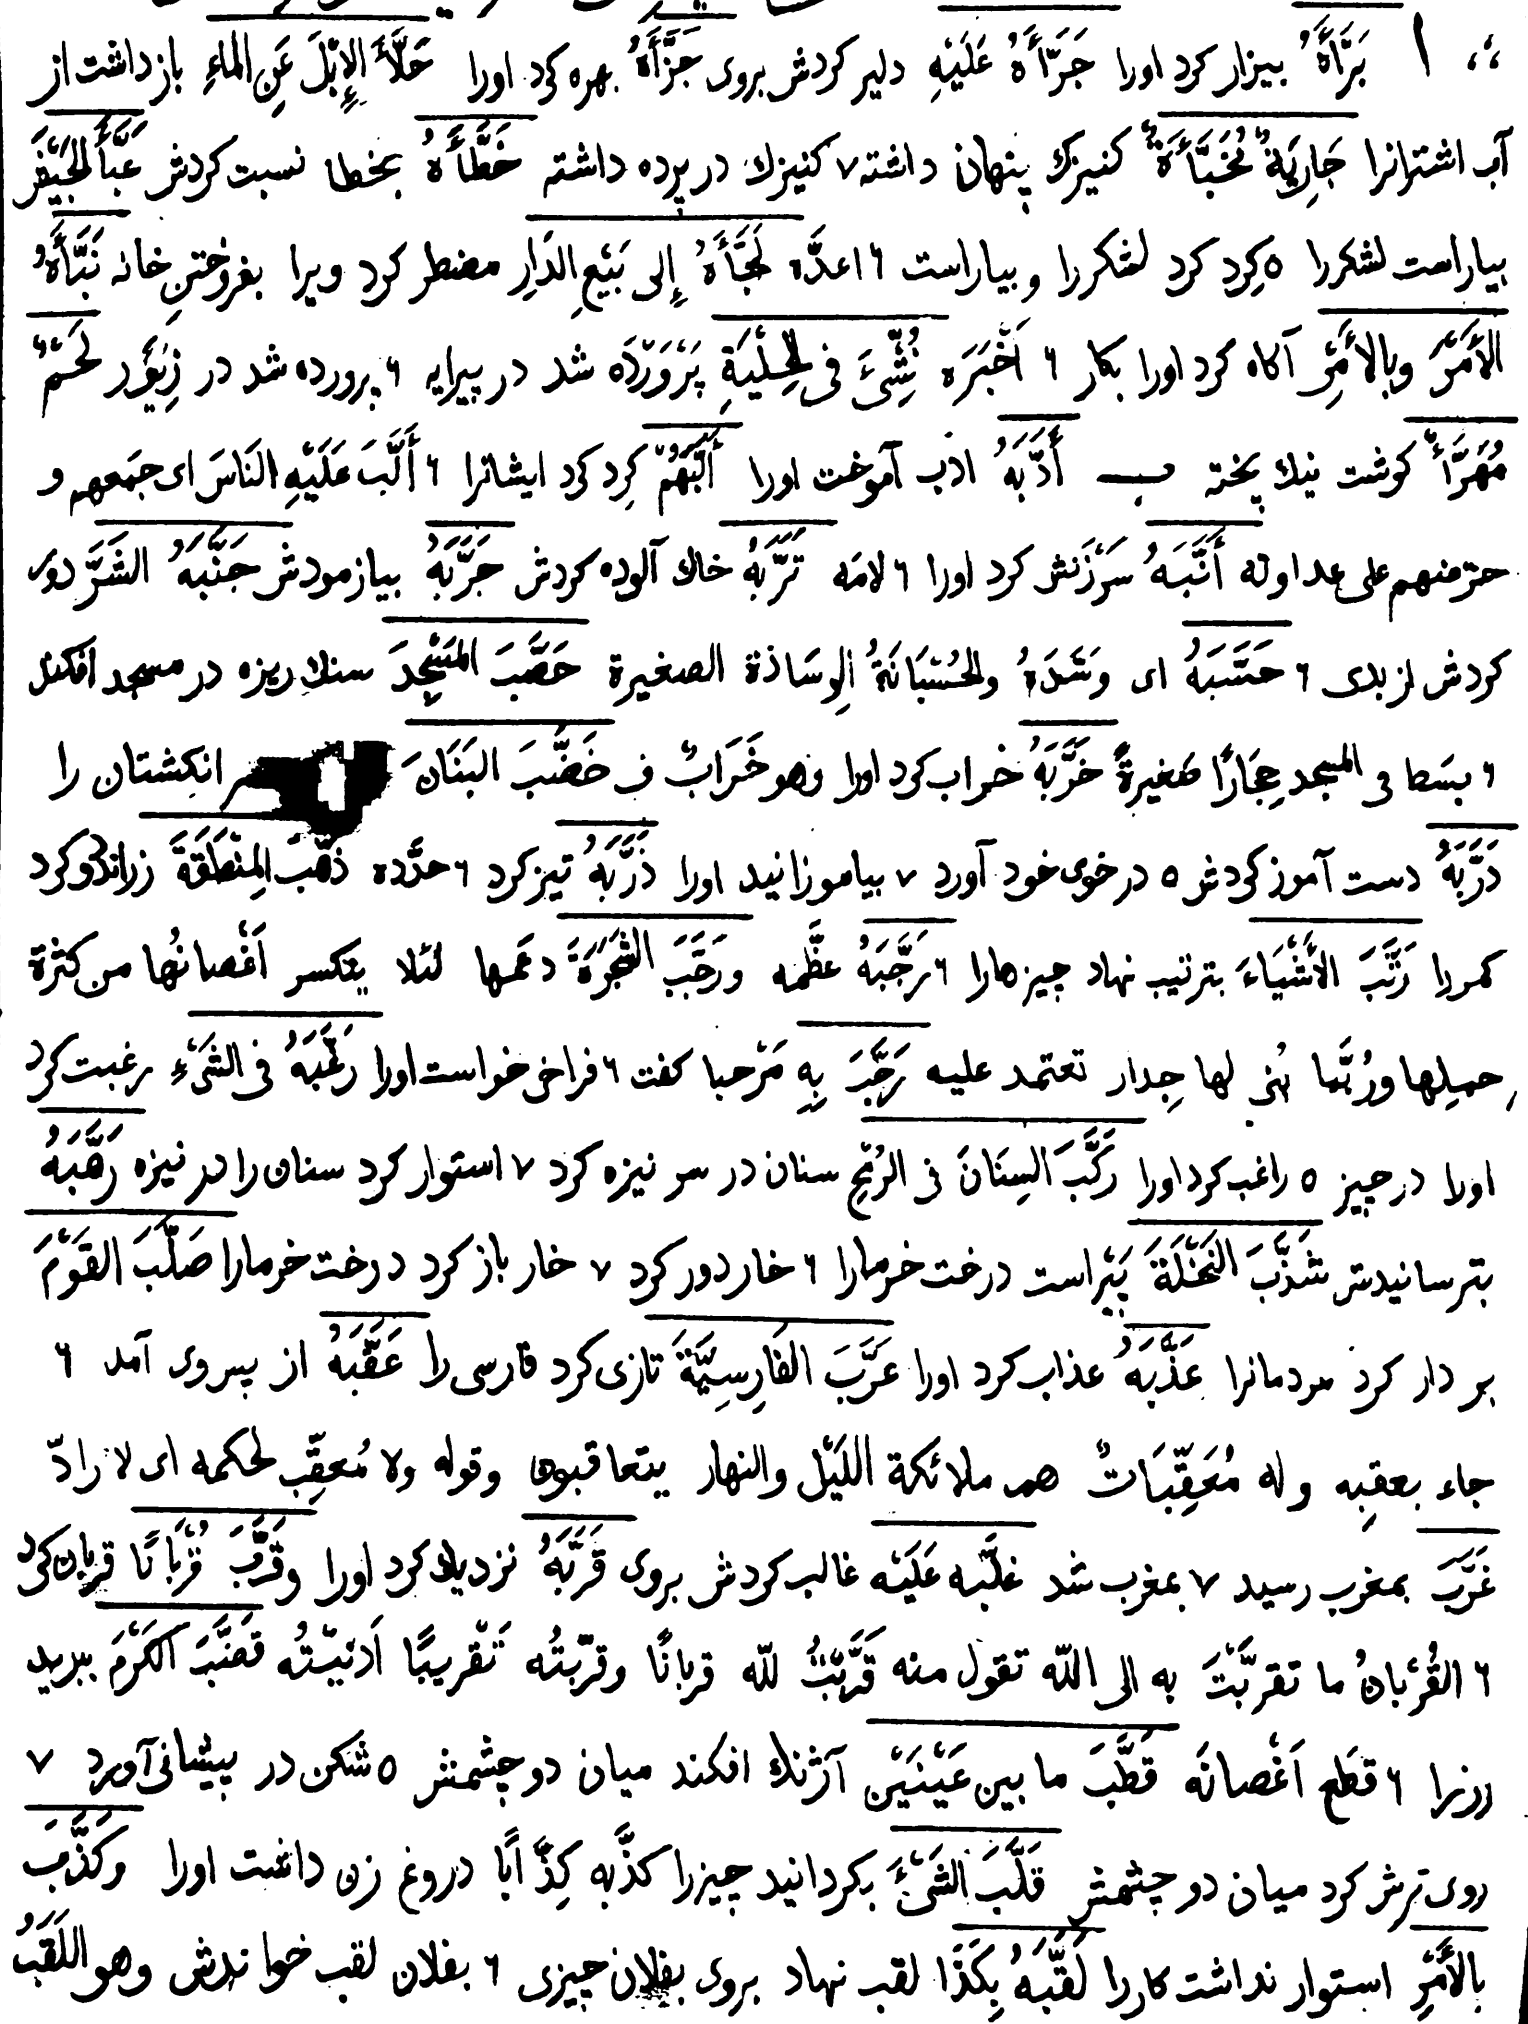 ،، ا بَرَّأَهُ بیزار کرد اورا جَرَّأَهُ عَلَیْهِ دلیر کردش بروی جَزَّأَهُ بهره کرد اورا حَلَّأَ الإِبْلَ عَنِ الماءِ باز داشت از
آب اشترانرا جَارِیَةٌ مُخَبَّأَةٌ کنیزك پنهان داشته ۷ کنیزك در پرده داشته خَطَّأَهُ بخطا نسبت کردش عَبَّأَ الجَیْشَ
بیاراست لشکررا ۵ کِرد کرد لشکررا و بیاراست ۶ اعدَّه لَجَّأَهُ إِلی بَیْعِ الدَارِ مضطر کرد ویرا بفروختنِ خانه نَبَّأَهُ
الأَمْرَ وبالأَمْرِ آکاه کرد اورا بکار ۶ اَخْبَرَه نُشِّیَٔ فی الحِلْیَةِ پَرْوَرْدَه شد در پیرایه ۶ پرورده شد در زِیْوَر لَحْمٌ
مُهَرَّأٌ کوشت نیك پخته ب أَدَّبَهُ ادب آموخت اورا أَلَّبَهُمْ کِرد کرد ایشانرا ۶ أَلَّبَ عَلَیْهِ النَاسَ ای جمَعهم و
حثر منهم علی عداوته أَنَّبَهُ سَرْزَنش کرد اورا ۶ لامَه تَرَّبَهُ خاك آلوده کردش جَرَّبَهُ بیازمودش جَنَّبَهُ الشَرَّ دور
کردش از بدی ۶ حَسَّبَهُ ای وَسَّدَهُ والحُسْبَانَةُ الوِسَاذة الصغیرة حَصَّبَ المَسْجِدَ سنك ریزه در مسجد افکند
۶ بسَط فی المسجد حِجَارًا صَغیرةً خَرَّبَهُ خراب کرد اورا وهو خَرَابٌ ف خَضَّبَ البَنَانَ سر انکشتان را
دَرَّبَهُ دست آموز کردش ۵ در خوی خود آورد ۷ بیاموزانید اورا ذَرَّبَهُ تیز کرد ۶ حدَّده ذَهَّبَ المِنْطَقَةَ زراندود کرد
کمررا رَتَّبَ الأَشْیَاءَ بترتیب نهاد چیزهارا ۶ رَجَّبَهُ عظَّمه ورَجَّبَ الشَجَرَةَ دعَمها لئلا یتکسر اَغْصانُها من کثرة
حمیلها ورُبَّما بُنی لها جِدار تعتمد علیه رَحَّبَ بِهِ مَرْحبا کفت ۶ فراخی خواست اورا رَغَّبَهُ فی الشَیْءِ رغبت کرد
اورا در چیز ۵ راغب کرد اورا رَکَّبَ السِنَانَ فی الرُمْحِ سنان در سر نیزه کرد ۷ استوار کرد سنان را در نیزه رَهَّبَهُ
بترسانیدش شَذَّبَ النَخْلَةَ پَیْراست درخت خرمارا ۶ خار دور کرد ۷ خار باز کرد درخت خرمارا صَلَّبَ القَوْمَ
بر دار کرد مردمانرا عَذَّبَهُ عذاب کرد اورا عَرَّبَ الفَارِسِیَّةَ تازی کرد فارسی را عَقَّبَهُ از پس وی آمد ۶
جاء بعقِبه وله مُعَقِّبَاتٌ هم ملائکة اللَیْل والنهار یتعاقبون وقوله ولا مُعقِّب لحکمه ای لا رادّ
غَرَّبَ بمغرب رسید ۷ بمغرب شد غلَّبه عَلَیْه غالب کردش بروی قَرَّبَهُ نزدیك کرد اورا وقَرَّبَ قُرْبَانًا قربان کرد
۶ القُرْبانُ ما تقرَّبْتَ به الی اللّه تقول منه قَرَّبْتُ للّه قربانًا وقرّبتُه تَقْریبًا اَدْنَیْتُه قَضَّبَ الکَرْمَ ببرید
رزرا ۶ قطَع اَغْصانَه قَطَّبَ ما بین عَیْنَیْنِ آژنك افکند میان دو چشمش ۵ شکن در پیشانی آورد ۷
روی ترش کرد میان دو چشمش قَلَّبَ الشَیْءَ بکردانید چیزرا کذَّبه کِذَّابًا دروغ زن داشت اورا وکَذَّبَ
بالأَمْرِ استوار نداشت کاررا لَقَّبَهُ بِکَذَا لقب نهاد بروی بفلان چیزی ۶ بفلان لقب خواندش وهو اللَقَبُ